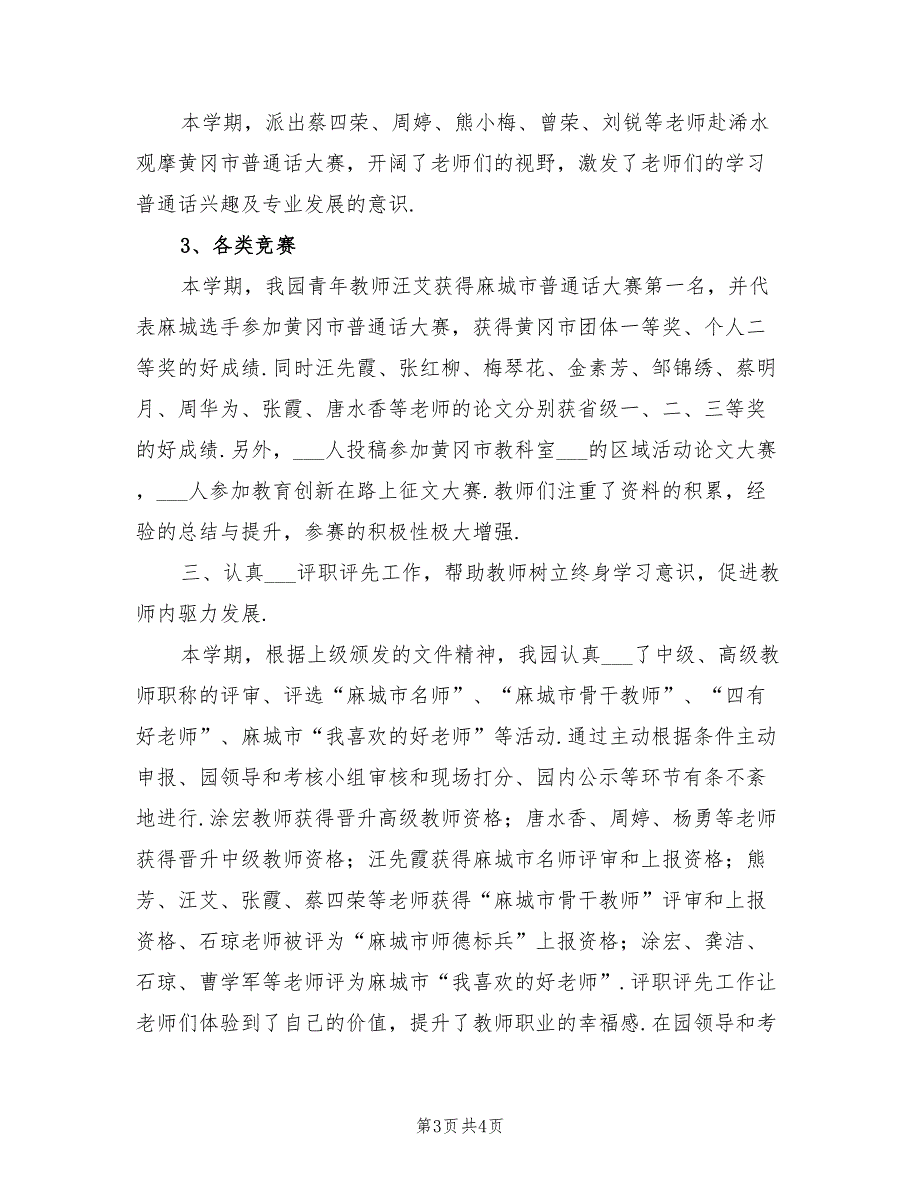 本学期，派出蔡四荣、周婷、熊小梅、曾荣、刘锐等老师赴浠水
观摩黄冈市普通话大赛，开阔了老师们的视野，激发了老师们的学习
普通话兴趣及专业发展的意识.
3、各类竞赛
本学期，我园青年教师汪艾获得麻城市普通话大赛第一名，并代
表麻城选手参加黄冈市普通话大赛，获得黄冈市团体一等奖、个人二
等奖的好成绩.同时汪先霞、张红柳、梅琴花、金素芳、邹锦绣、蔡明
月、周华为、张霞、唐水香等老师的论文分别获省级一、二、三等奖
的好成绩.另外，___人投稿参加黄冈市教科室___的区域活动论文大赛
，___人参加教育创新在路上征文大赛.教师们注重了资料的积累，经
验的总结与提升，参赛的积极性极大增强.
三、认真___评职评先工作，帮助教师树立终身学习意识，促进教
师内驱力发展.
本学期，根据上级颁发的文件精神，我园认真___了中级、高级教
师职称的评审、评选“麻城市名师”、“麻城市骨干教师”、“四有
好老师”、麻城市“我喜欢的好老师”等活动.通过主动根据条件主动
申报、园领导和考核小组审核和现场打分、园内公示等环节有条不紊
地进行.涂宏教师获得晋升高级教师资格；唐水香、周婷、杨勇等老师
获得晋升中级教师资格；汪先霞获得麻城市名师评审和上报资格；熊
芳、汪艾、张霞、蔡四荣等老师获得“麻城市骨干教师”评审和上报
资格、石琼老师被评为“麻城市师德标兵”上报资格；涂宏、龚洁、
石琼、曹学军等老师评为麻城市“我喜欢的好老师”.评职评先工作让
老师们体验到了自己的价值，提升了教师职业的幸福感.在园领导和考
第3页共4页